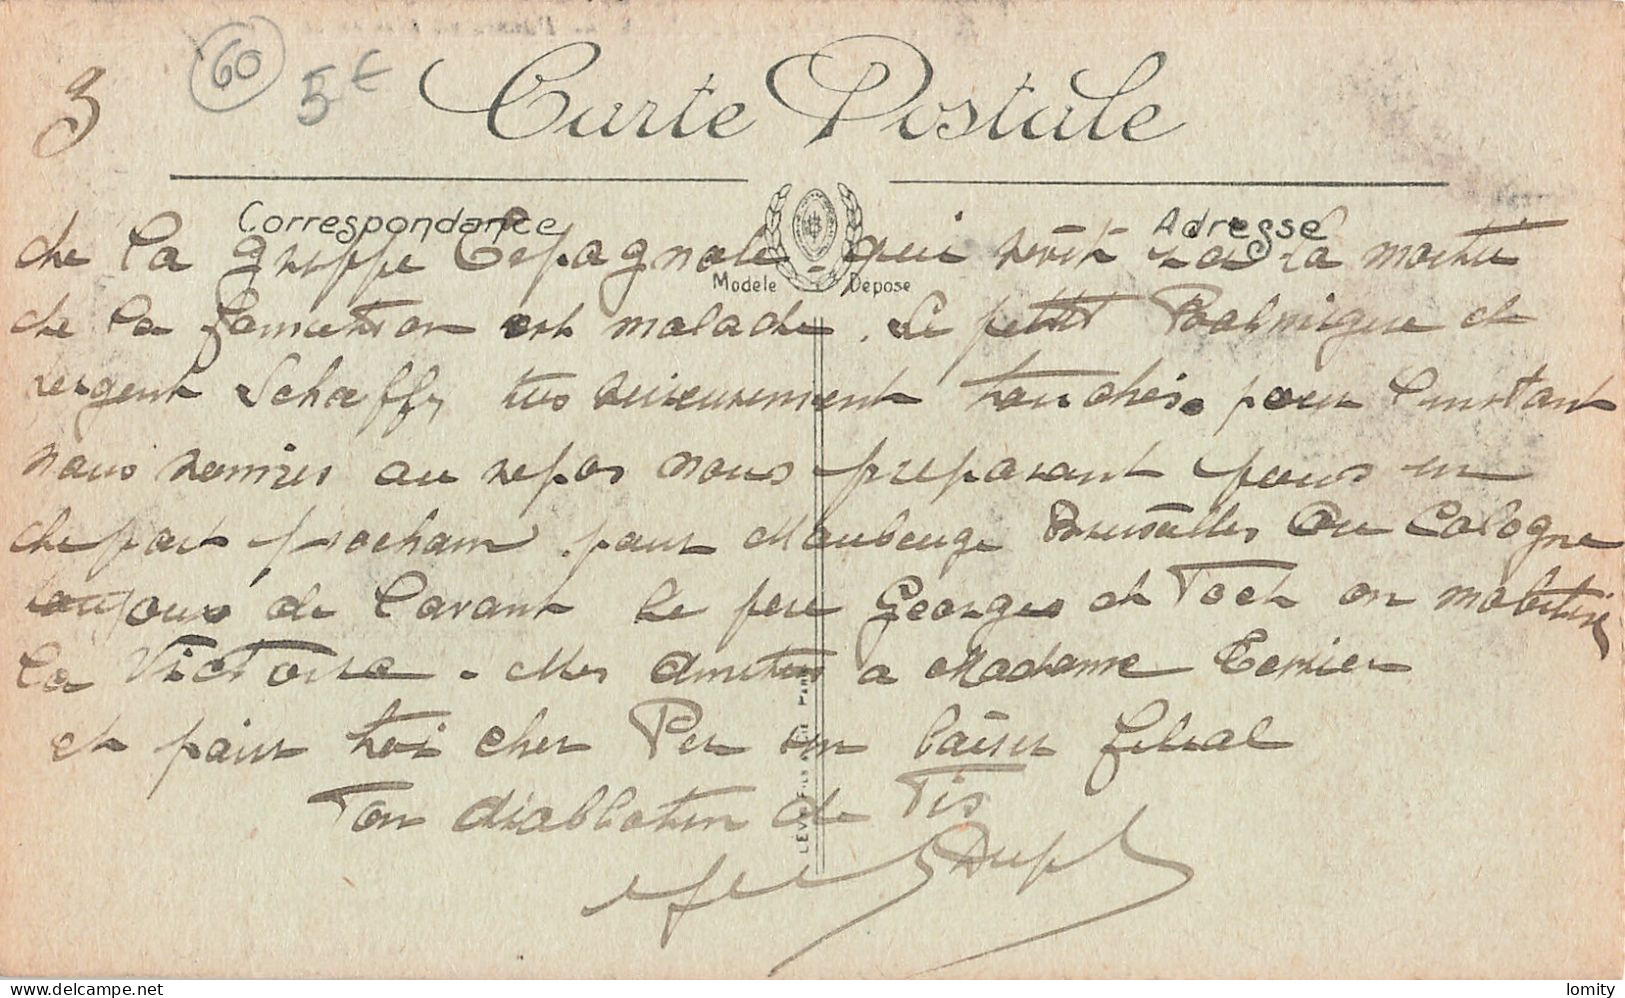 3
60
5€
Carte Postale
Correspondance
Adresse
Modèle Déposé
de la grippe Espagnole qui sévit la moitié
de la formation est malade. Le petit et
sergent Schaeffy très sérieusement touchés. pour l'instant
nous sommes au repos nous préparant pour un
départ prochain. pour Maubeuge Bruxelles Ou Cologne
toujours de l'avant le père Georges et Foch on
la Victoire. Mes amitiés a Madame
et pour toi cher Per un baiser filial
Ton diablotin de fis
Dup
LEVY FILS & CIE PARIS
delcampe.net
lomity